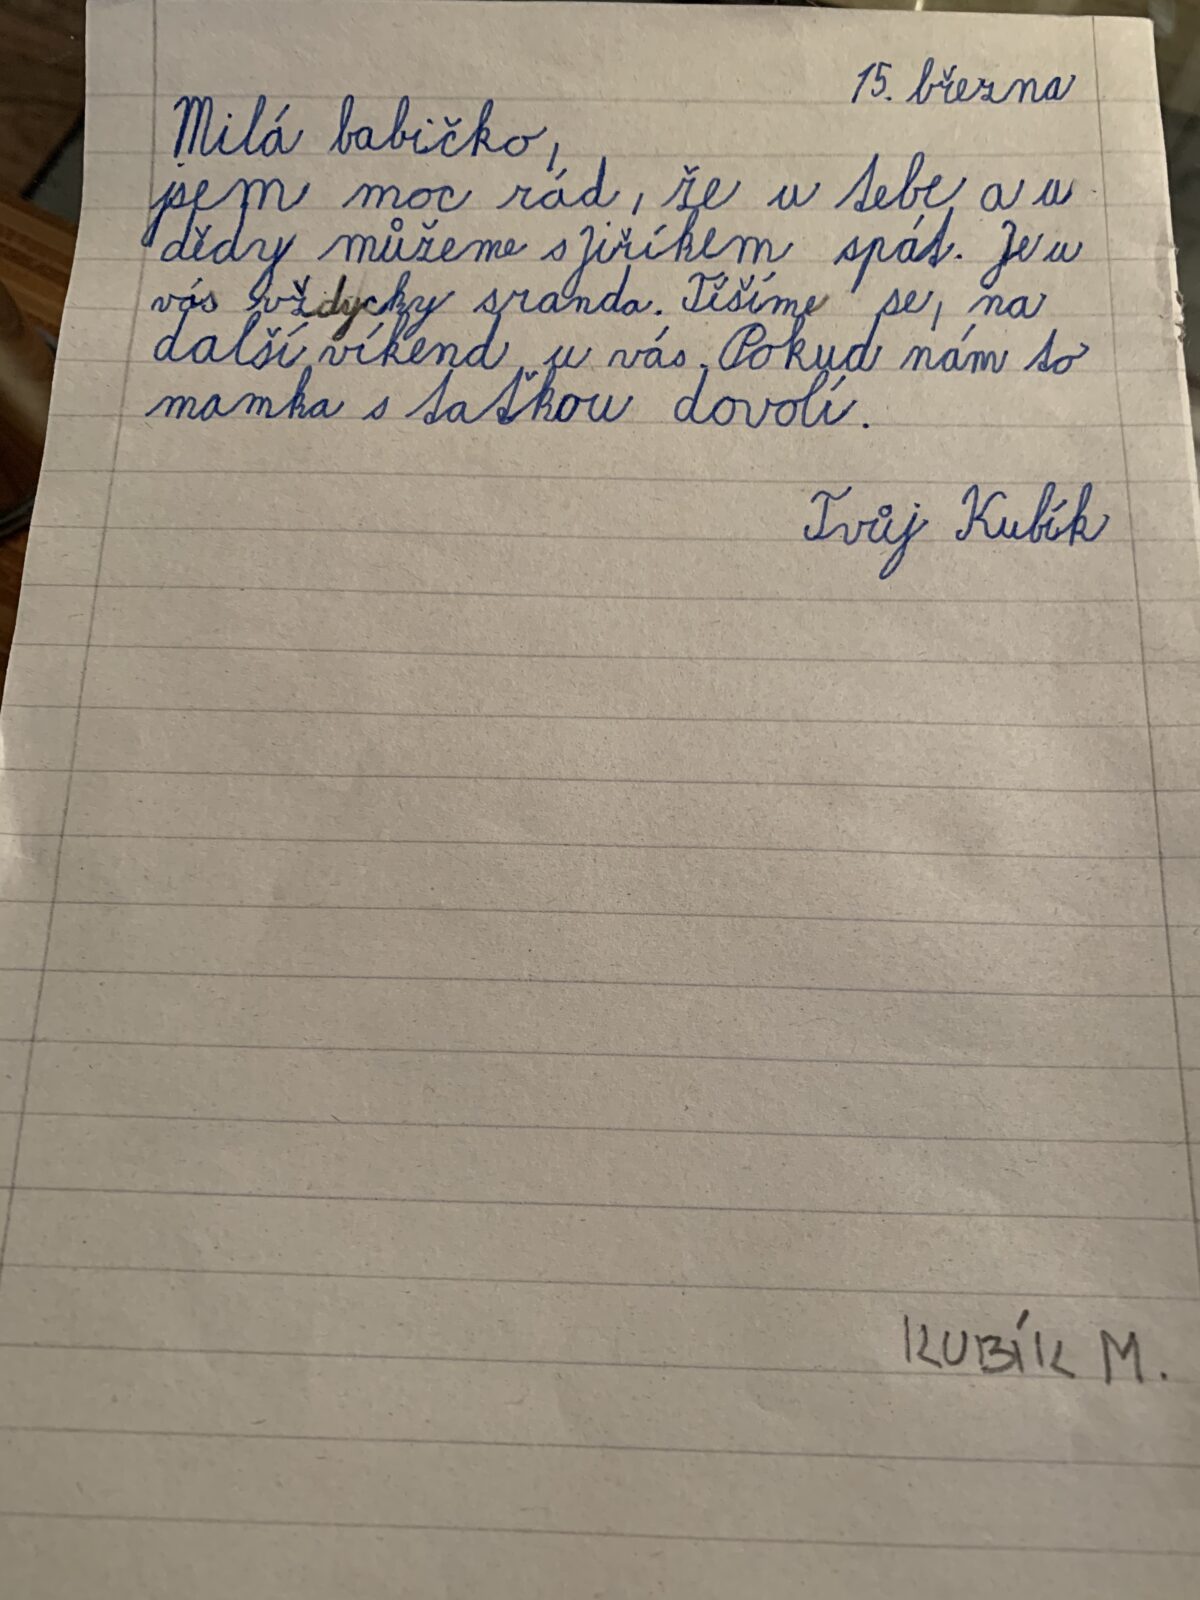 15. března
Milá babičko,
jsem moc rád, že u tebe a u
dědy můžeme s Jiříkem spát. Je u
vás vždycky sranda. Těšíme se, na
další víkend u vás. Pokud nám to
mamka s taťkou dovolí.
Tvůj Kubík
KUBÍK M.